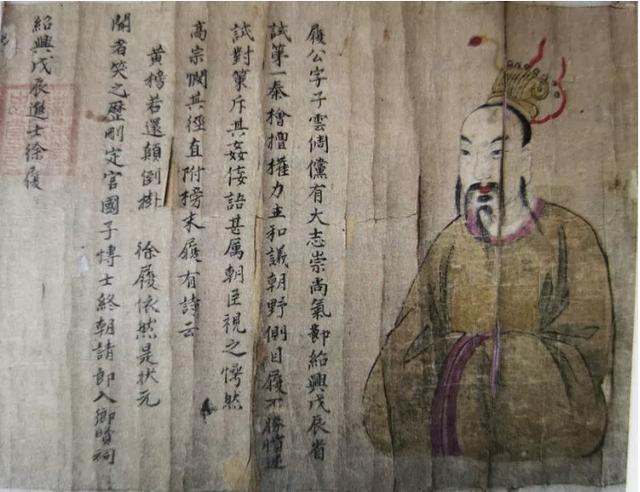 履公字子雲倜儻有大志崇尚氣節紹興戊辰省
試第一秦檜擅權力主和議朝野側目履不勝憤逮
試對策斥其姦佞語甚厲朝臣視之愕然
高宗憫其徑直附榜末履有詩云
黃榜若還顛倒掛 徐履依然是狀元
聞者笑之歷刪定官國子博士終朝請郎入鄉賢祠
紹興戊辰進士徐履